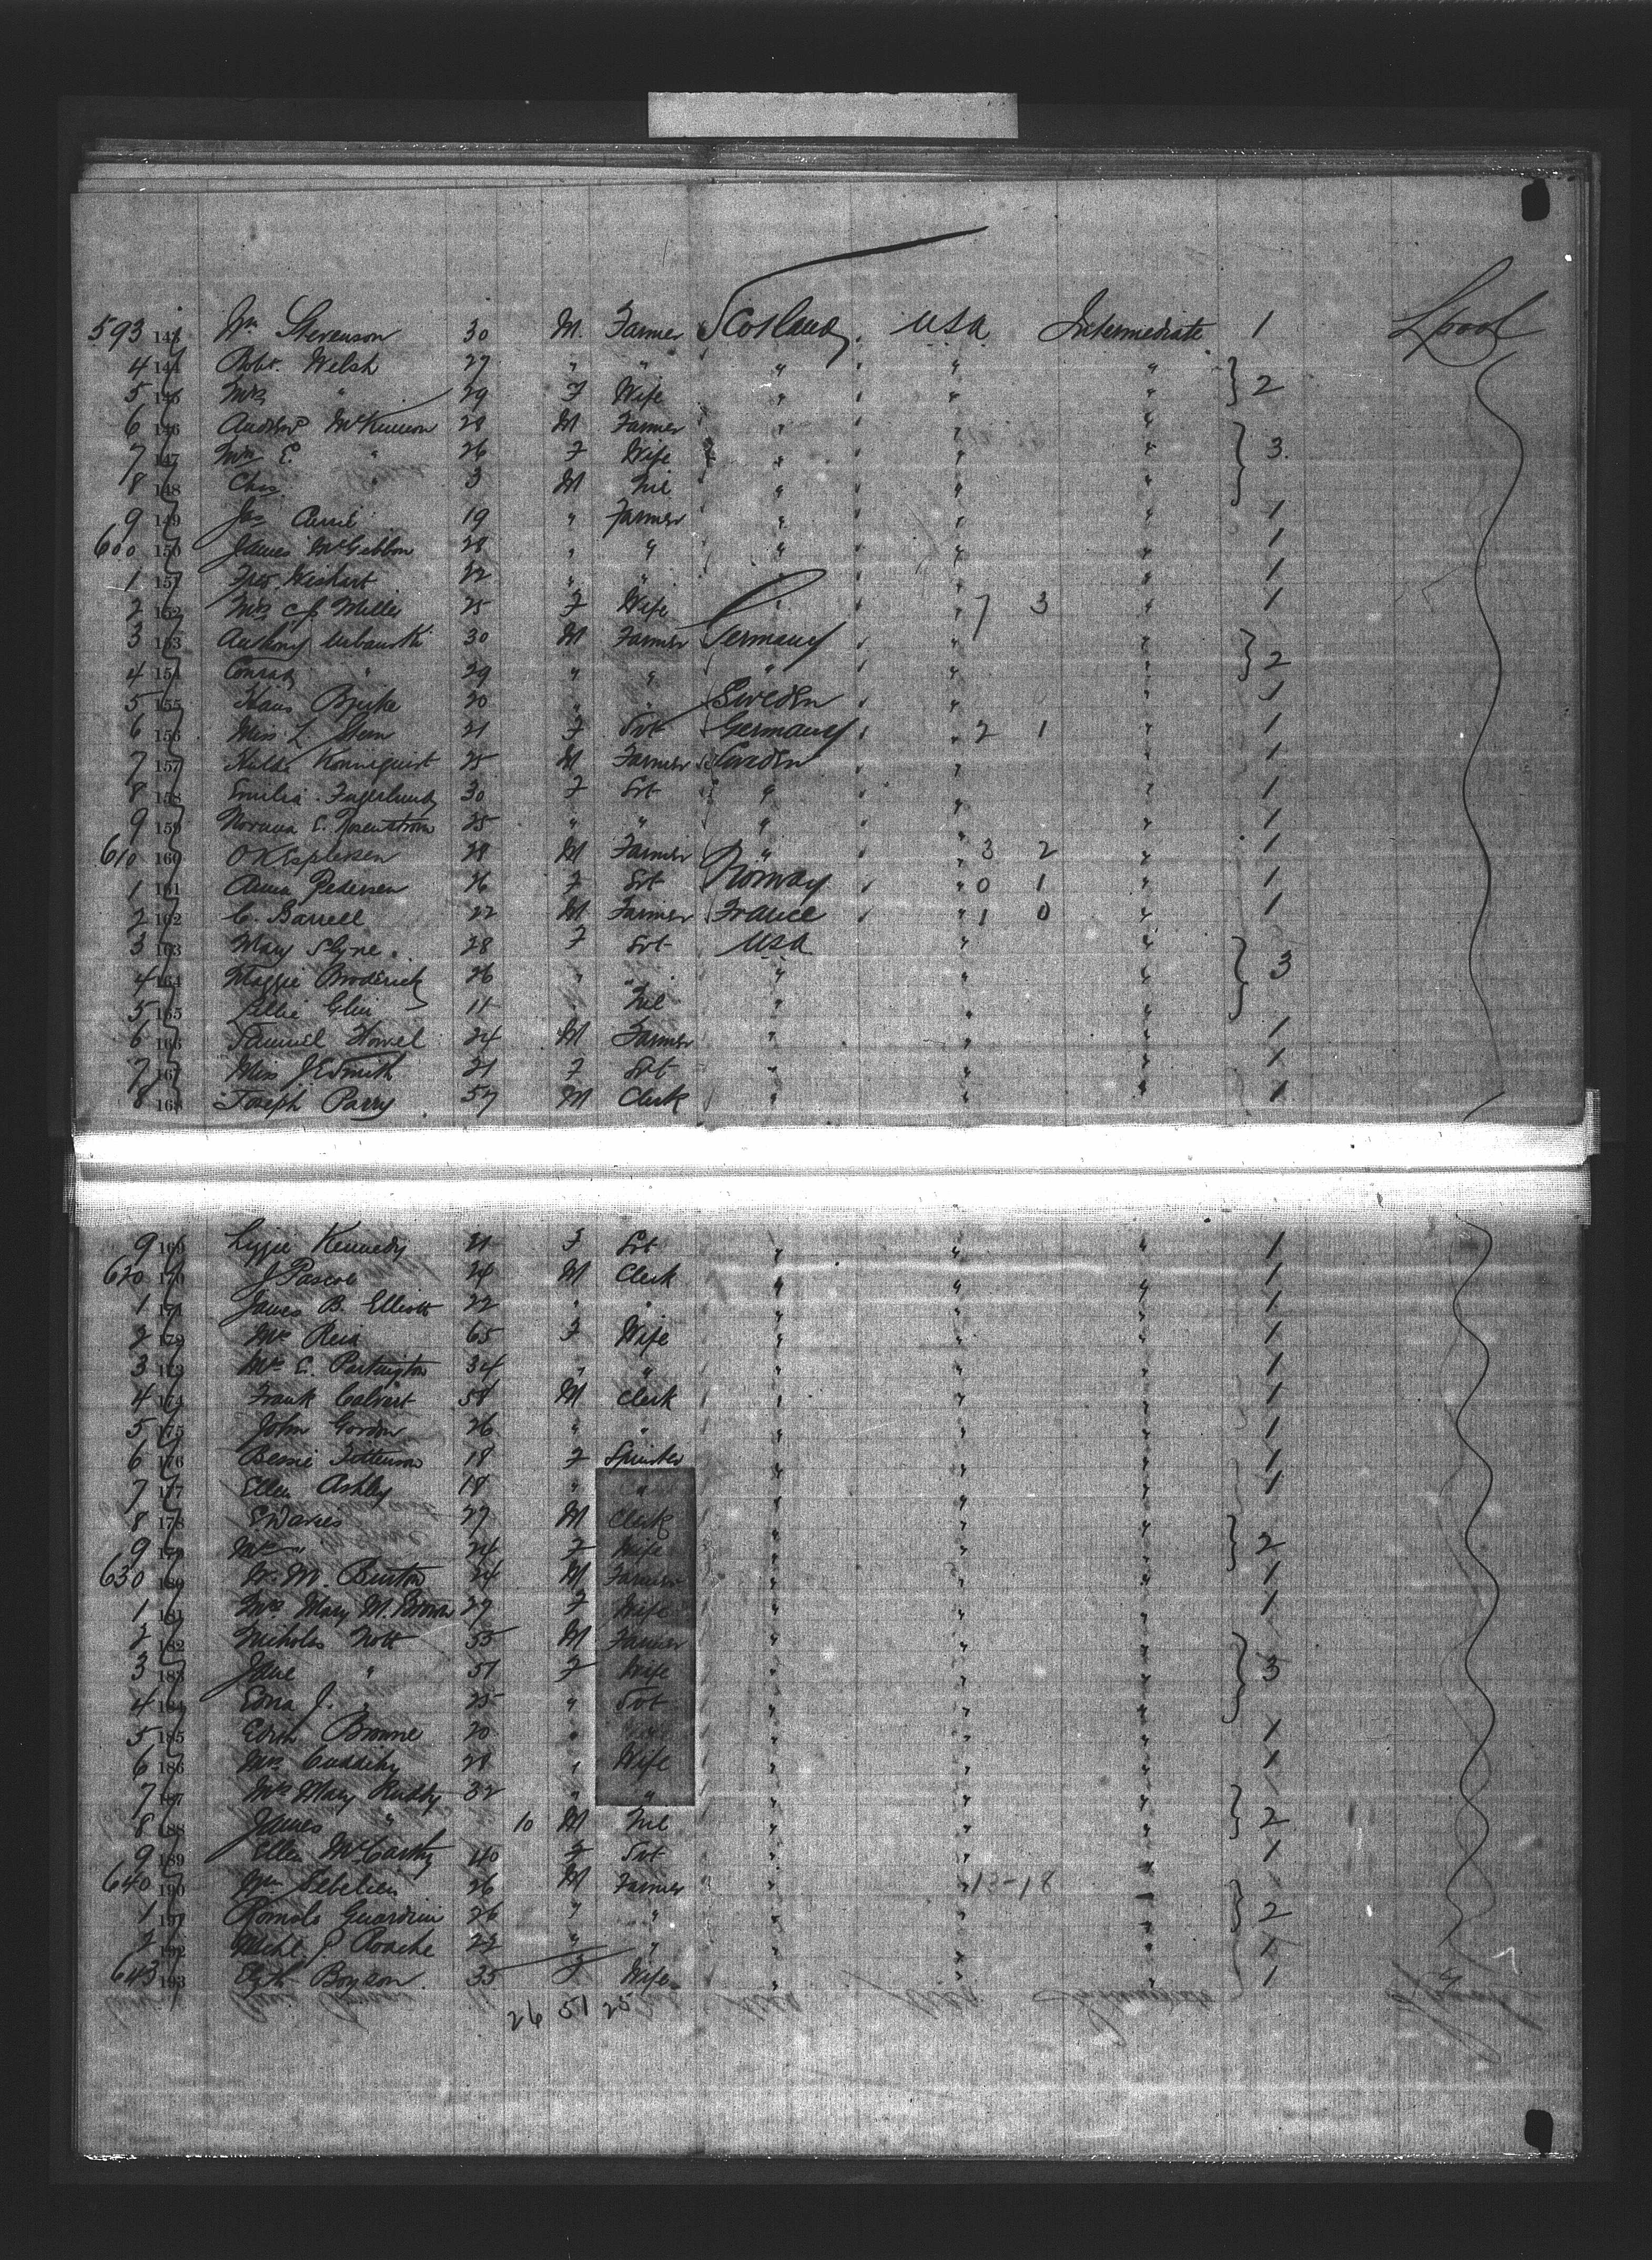 593 143 Wm Stevenson 30 M. Farmer Scotland USA Intermediate 1 Lpool
4 144 Robt. Welsh 27 " " " " "
5 145 Mrs " 29 F Wife " " " } 2
6 146 Andrew McKinnon 28 M Farmer " " "
7 147 Mrs E. " 26 F Wife " " " } 3
8 148 Chas. " 3 M Nil " " "
9 149 Jas Currie 19 " Farmer " " " 1
600 150 James McGibbon 28 " " " " " 1
1 151 Wishart 22 " " " " " 1
2 152 Mrs Miller 25 F Wife " 7 3 " 1
3 153 Anthony Urbanski 30 M Farmer Germany " "
4 154 Conrad " 29 " " " " " } 2
5 155 Hans 20 " " Sweden " " 1
6 156 Miss L Stern 21 F Svt Germany 2 1 " 1
7 157 25 M Farmer Sweden " " 1
8 158 Emilia Fagerlund 30 F Svt " " " 1
9 159 25 " " " " " 1
610 160 O K Espelesen 28 M Farmer " 3 2 " 1
1 161 Anna Pedersen 26 F Svt Norway " 0 1 " 1
2 162 C. Barrell 22 M Farmer France " 1 0 " 1
3 163 Mary Slyne 28 F Svt USA " "
4 164 Maggie Broderick 26 " " " " " } 3
5 165 11 " Nil " " "
6 166 Samuel Howel 24 M Farmer " " " 1
7 167 Miss J E Smith 21 F Svt " " " 1
8 168 Joseph Parry 57 M Clerk " " " 1
9 169 Lizzie Kennedy 21 F Svt " " " 1
620 170 J Pascoe 24 M Clerk " " " 1
1 171 James B. Elliott 22 " " " " " 1
2 172 Mrs Reid 65 F Wife " " " 1
3 173 Mrs E. Partington 34 " " " " " 1
4 174 Frank Calvert 58 M Clerk " " " 1
5 175 John Gordon 26 " " " " " 1
6 176 Bessie 18 F Spinster " " " 1
7 177 Ellen Ashley 18 " " " " " 1
8 178 E Davies 27 M Clerk " " "
9 179 Mrs " 24 F Wife " " " } 2
630 180 M. Burton 24 M Farmer " " " 1
1 181 Mrs Mary M. Brown 27 F Wife " " " 1
2 182 Nicholas Nott 53 M Farmer " " "
3 183 Jane " 51 F Wife " " " } 3
4 184 Edna J. " 25 " Svt " " "
5 185 Edith Browne 20 " " " " " 1
6 186 Mrs Cuddihy 28 " Wife " " " 1
7 187 Mrs Mary Ruddy 32 " " " " "
8 188 James " 10 M Nil " " " } 2
9 189 Ellen McCarthy 40 F Svt " " " 1
640 190 Wm Sebelien 26 M Farmer " 13-18 "
1 191 Romolo Guardini 26 " " " " " } 2
2 192 Michl J Roache 22 " " " " " 1
643 193 Elizth 35 F Wife " " " 1 "
26 51 25